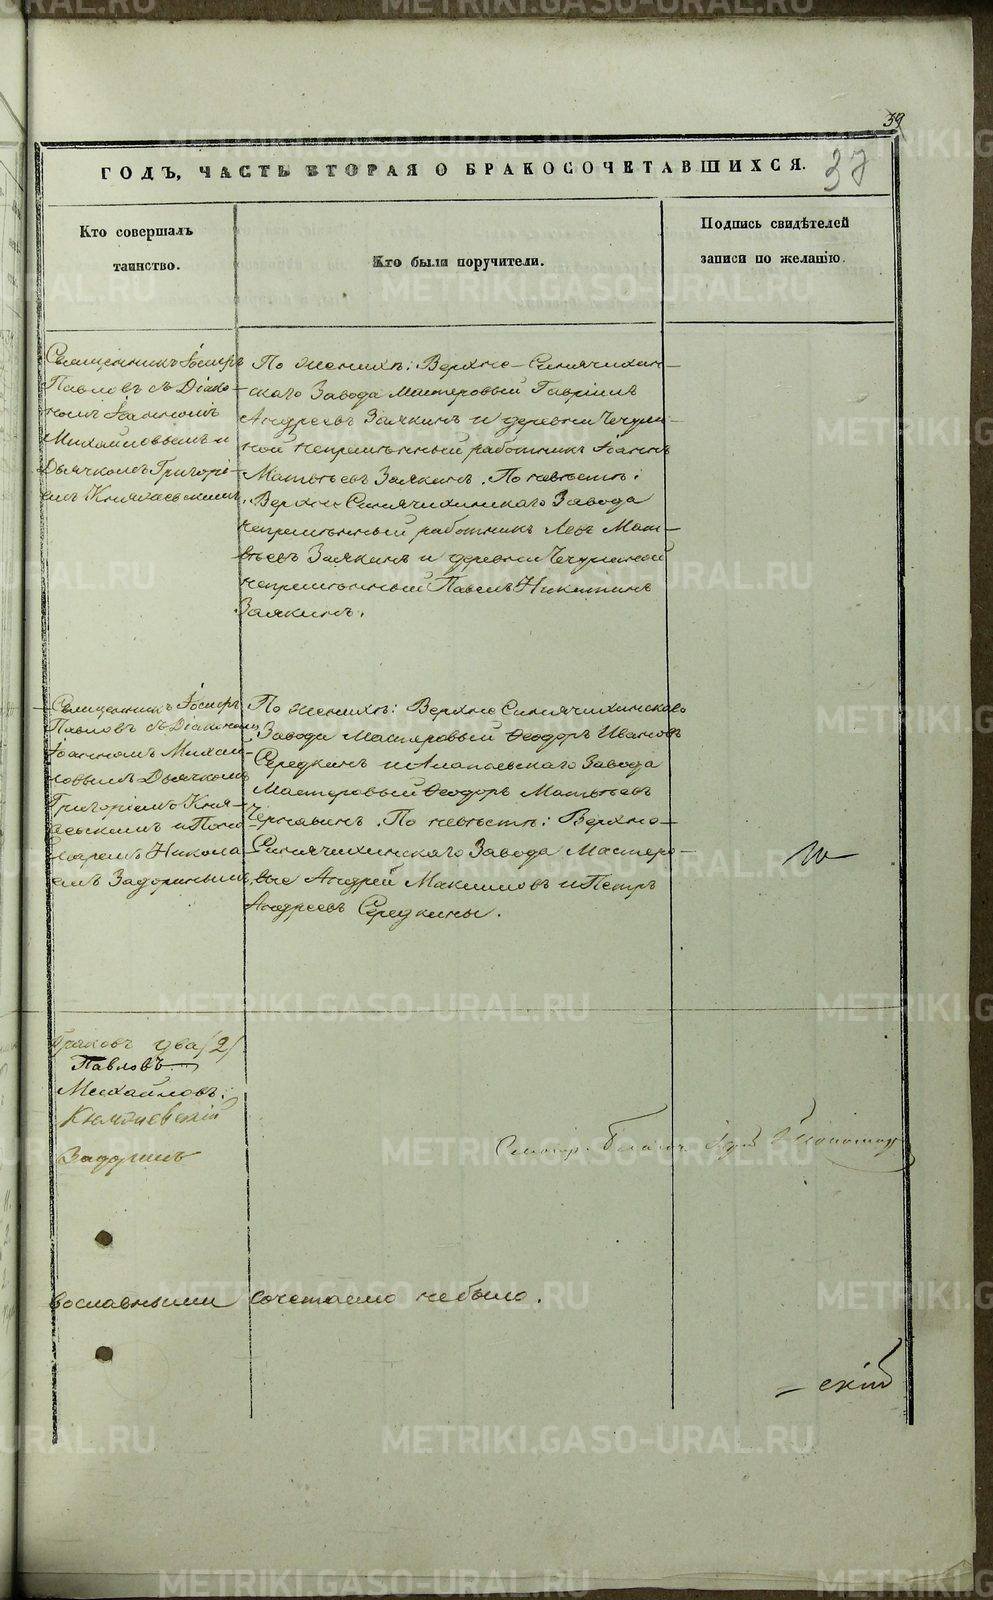 39
ГОДЪ, ЧАСТЬ ВТОРАЯ О БРАКОСОЧЕТАВШИХСЯ.
37
Кто совершалъ
таинство.
Кто были поручители.
Подпись свидѣтелей
записи по желанію.
Священникъ Іосифъ
Павловъ съ Діако-
номъ Іоанномъ
Михайловымъ и
Дьячкомъ Григорі-
емъ Княжевскимъ.
По женихѣ: Верхне-Синячихин-
скаго Завода Мастеровый Гавріилъ
Андреевъ Заякинъ и деревни Чечули-
ной непремѣнный работникъ Іоаннъ
Матвѣевъ Заякинъ. По невѣстѣ:
Верхне Синячихинскаго Завода
непремѣнный работникъ Левъ Мат-
вѣевъ Заякинъ и деревни Чечулиной
непремѣнный Павелъ Никитинъ
Заякинъ.
Священникъ Іосифъ
Павловъ съ Діакономъ
Іоанномъ Михай-
ловымъ Дьячкомъ
Григоріемъ Кня-
жевскимъ и Поно-
маремъ Никола-
емъ Задоринымъ.
По женихѣ: Верхне Синячихинскаго
Завода Мастеровый Ѳеодоръ Ивановъ
Середкинъ и Алапаевскаго Завода
Мастеровый Ѳеодоръ Матвѣевъ
Чернавинъ. По невѣстѣ: Верхне-
Синячихинскаго Завода Мастеро-
вые Андрей Максимовъ и Петръ
Андреевъ Середкины.
Браковъ два /2/
Павловъ
Михайловъ
Княжевскій
Задоринъ
вославными сочетаемо небыло.
-скій
METRIKI.GASO-URAL.RU